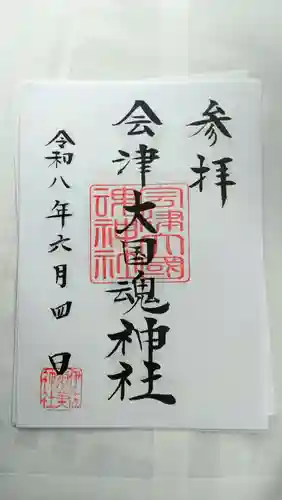 参拝
会津大国魂神社
令和八年六月四日
會津大國魂神社